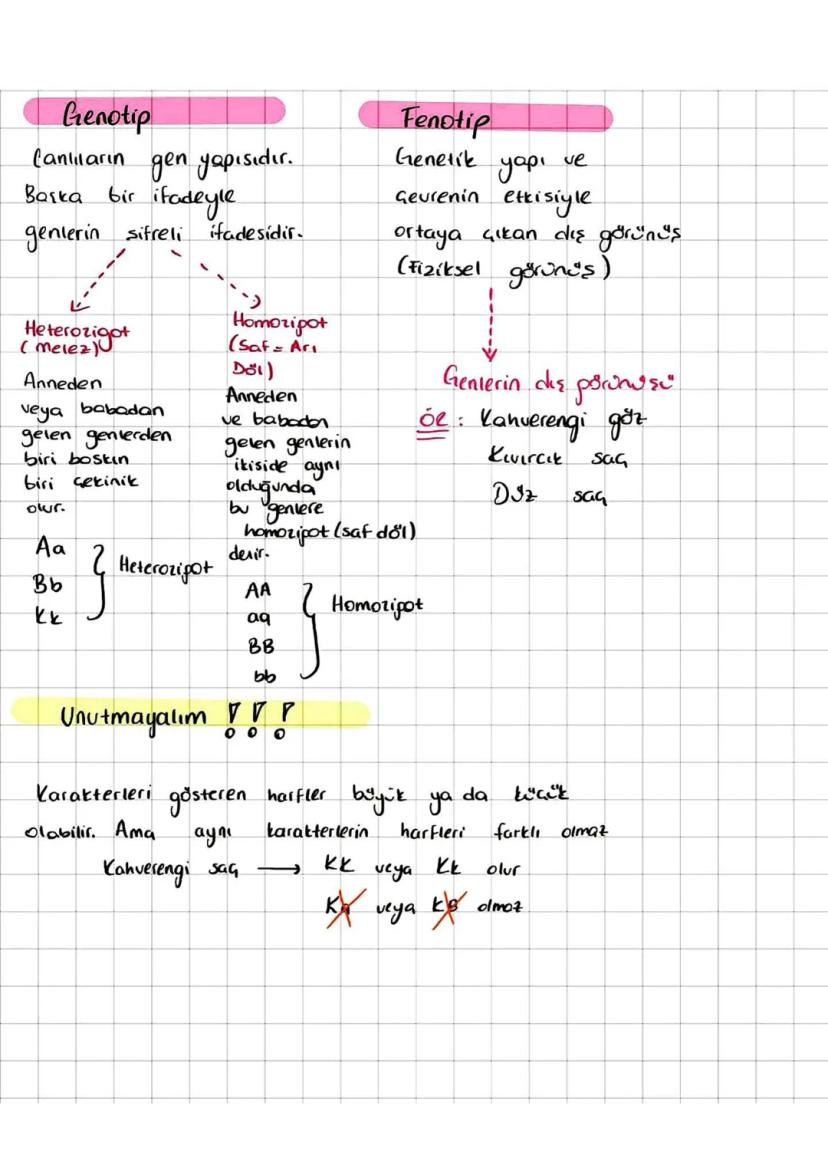 Genotip
Canlıların gen yapısıdır.
Başka bir ifadeyle
genlerin şifreli ifadesidir.
Heterozigot
(melez)
Anneden
veya babadan
gelen genlerden
biri baskın
biri çekinik
olur.
Aa
Bb
Kk
Heterozigot
Homozigot
(Saf = Arı
Döl)
Anneden
ve babadan
gelen genlerin
ikiside aynı
olduğunda
bu genlere
homozigot (saf döl)
denir.
AA
aa
BB
bb
Homozigot
Fenotip
Genetik yapı ve
çevrenin etkisiyle
ortaya çıkan dış görünüş
(Fiziksel görünüş)
Genlerin dış görünüşü
ÖR: Kahverengi göz
Kıvırcık saç
Düz saç
Unutmayalım !!!
Karakterleri gösteren harfler büyük ya da küçük
olabilir. Ama aynı karakterlerin harfleri farklı olmaz
Kahverengi saç → KK veya Kk olur
veya olmaz